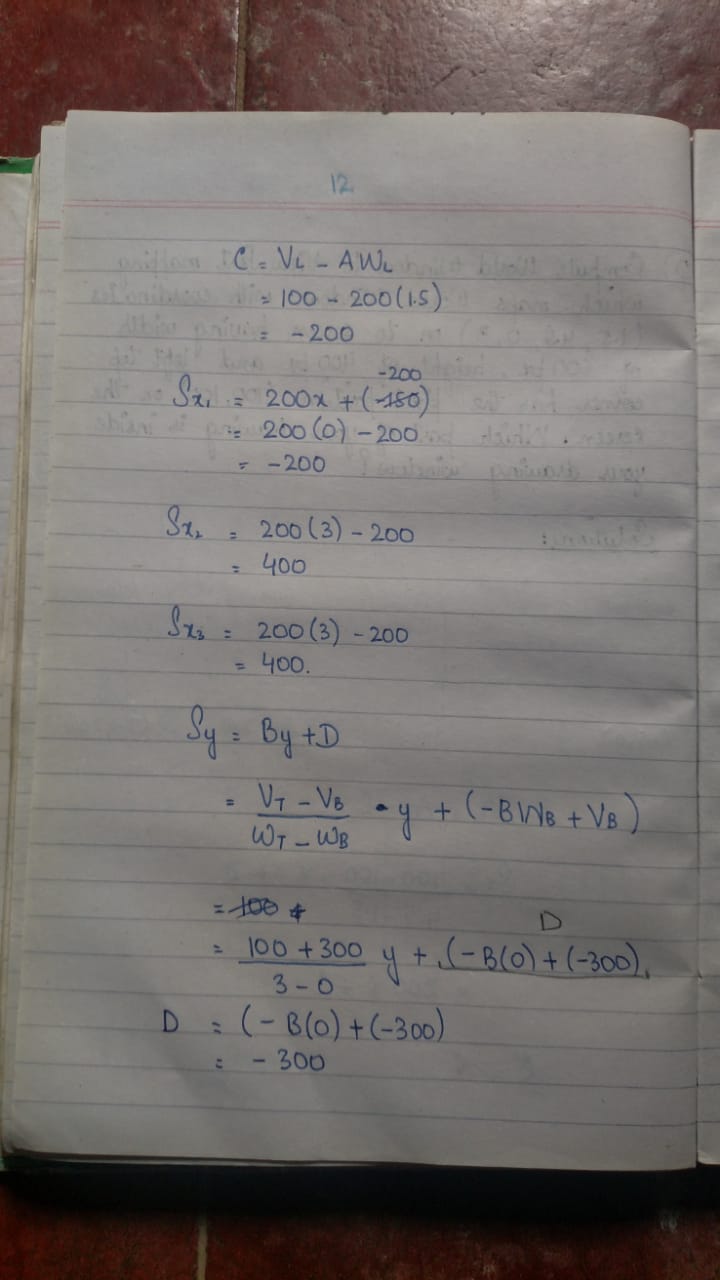 12
C = VL - AWL
= 100 - 200(1.5)
= -200
-200
Sx1 = 200x + (-150)
= 200(0) - 200
= -200
Sx2 = 200(3) - 200
= 400
Sx3 = 200(3) - 200
= 400.
Sy = By + D
= VT - VB / WT - WB • y + (-BWB + VB)
= 100 +
D
= 100 + 300 / 3 - 0 y + (-B(0) + (-300)
D = (-B(0) + (-300)
= -300